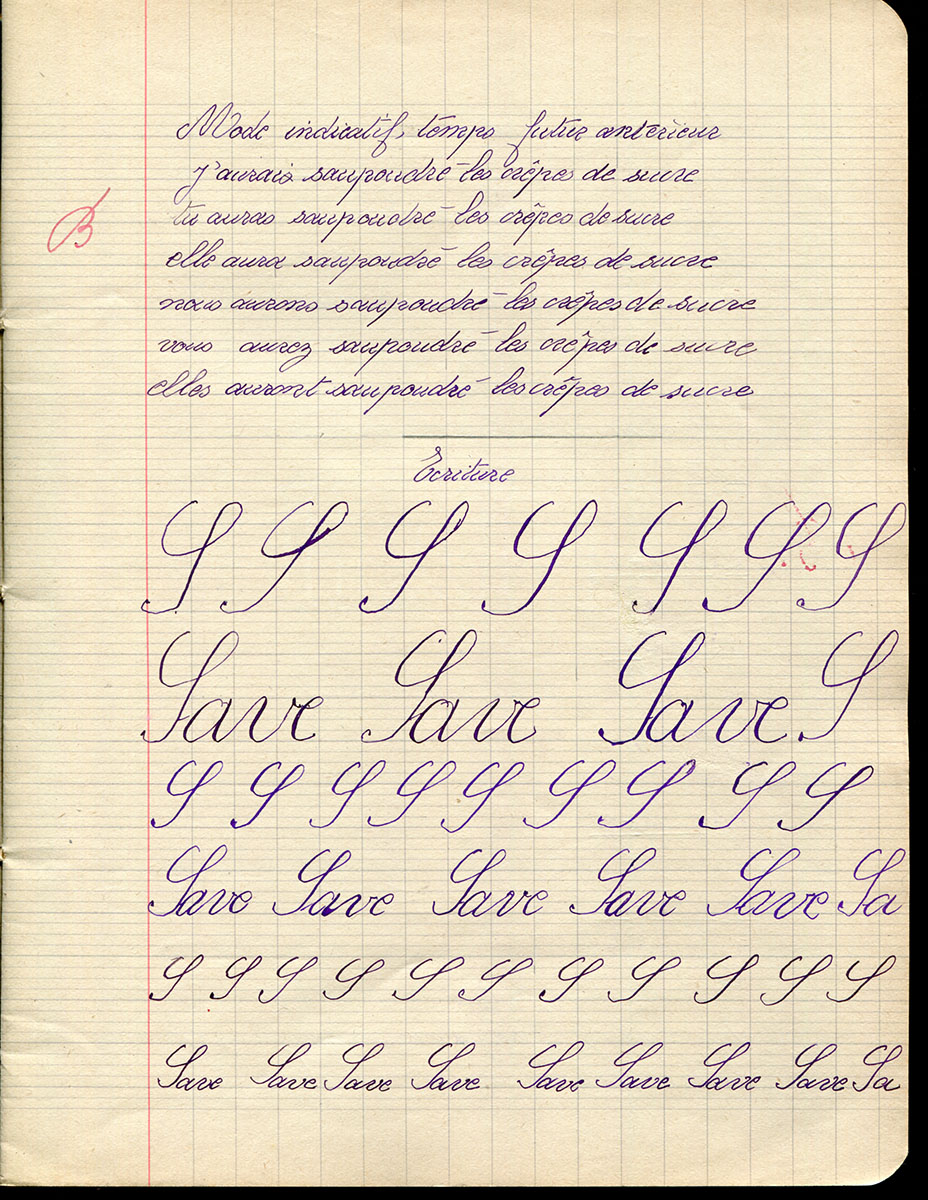 Mode indicatif, temps futur antérieur
j'aurais saupoudré les crêpes de sucre
B
tu auras saupoudré les crêpes de sucre
elle aura saupoudré les crêpes de sucre
nous aurons saupoudré les crêpes de sucre
vous aurez saupoudré les crêpes de sucre
elles auront saupoudré les crêpes de sucre
Ecriture
S S S S S S S
Save Save Save. S
S S S S S S S S S
Save Save Save Save Save Sa
S S S S S S S S S S S
Save Save Save Save Save Save Save Save Sa